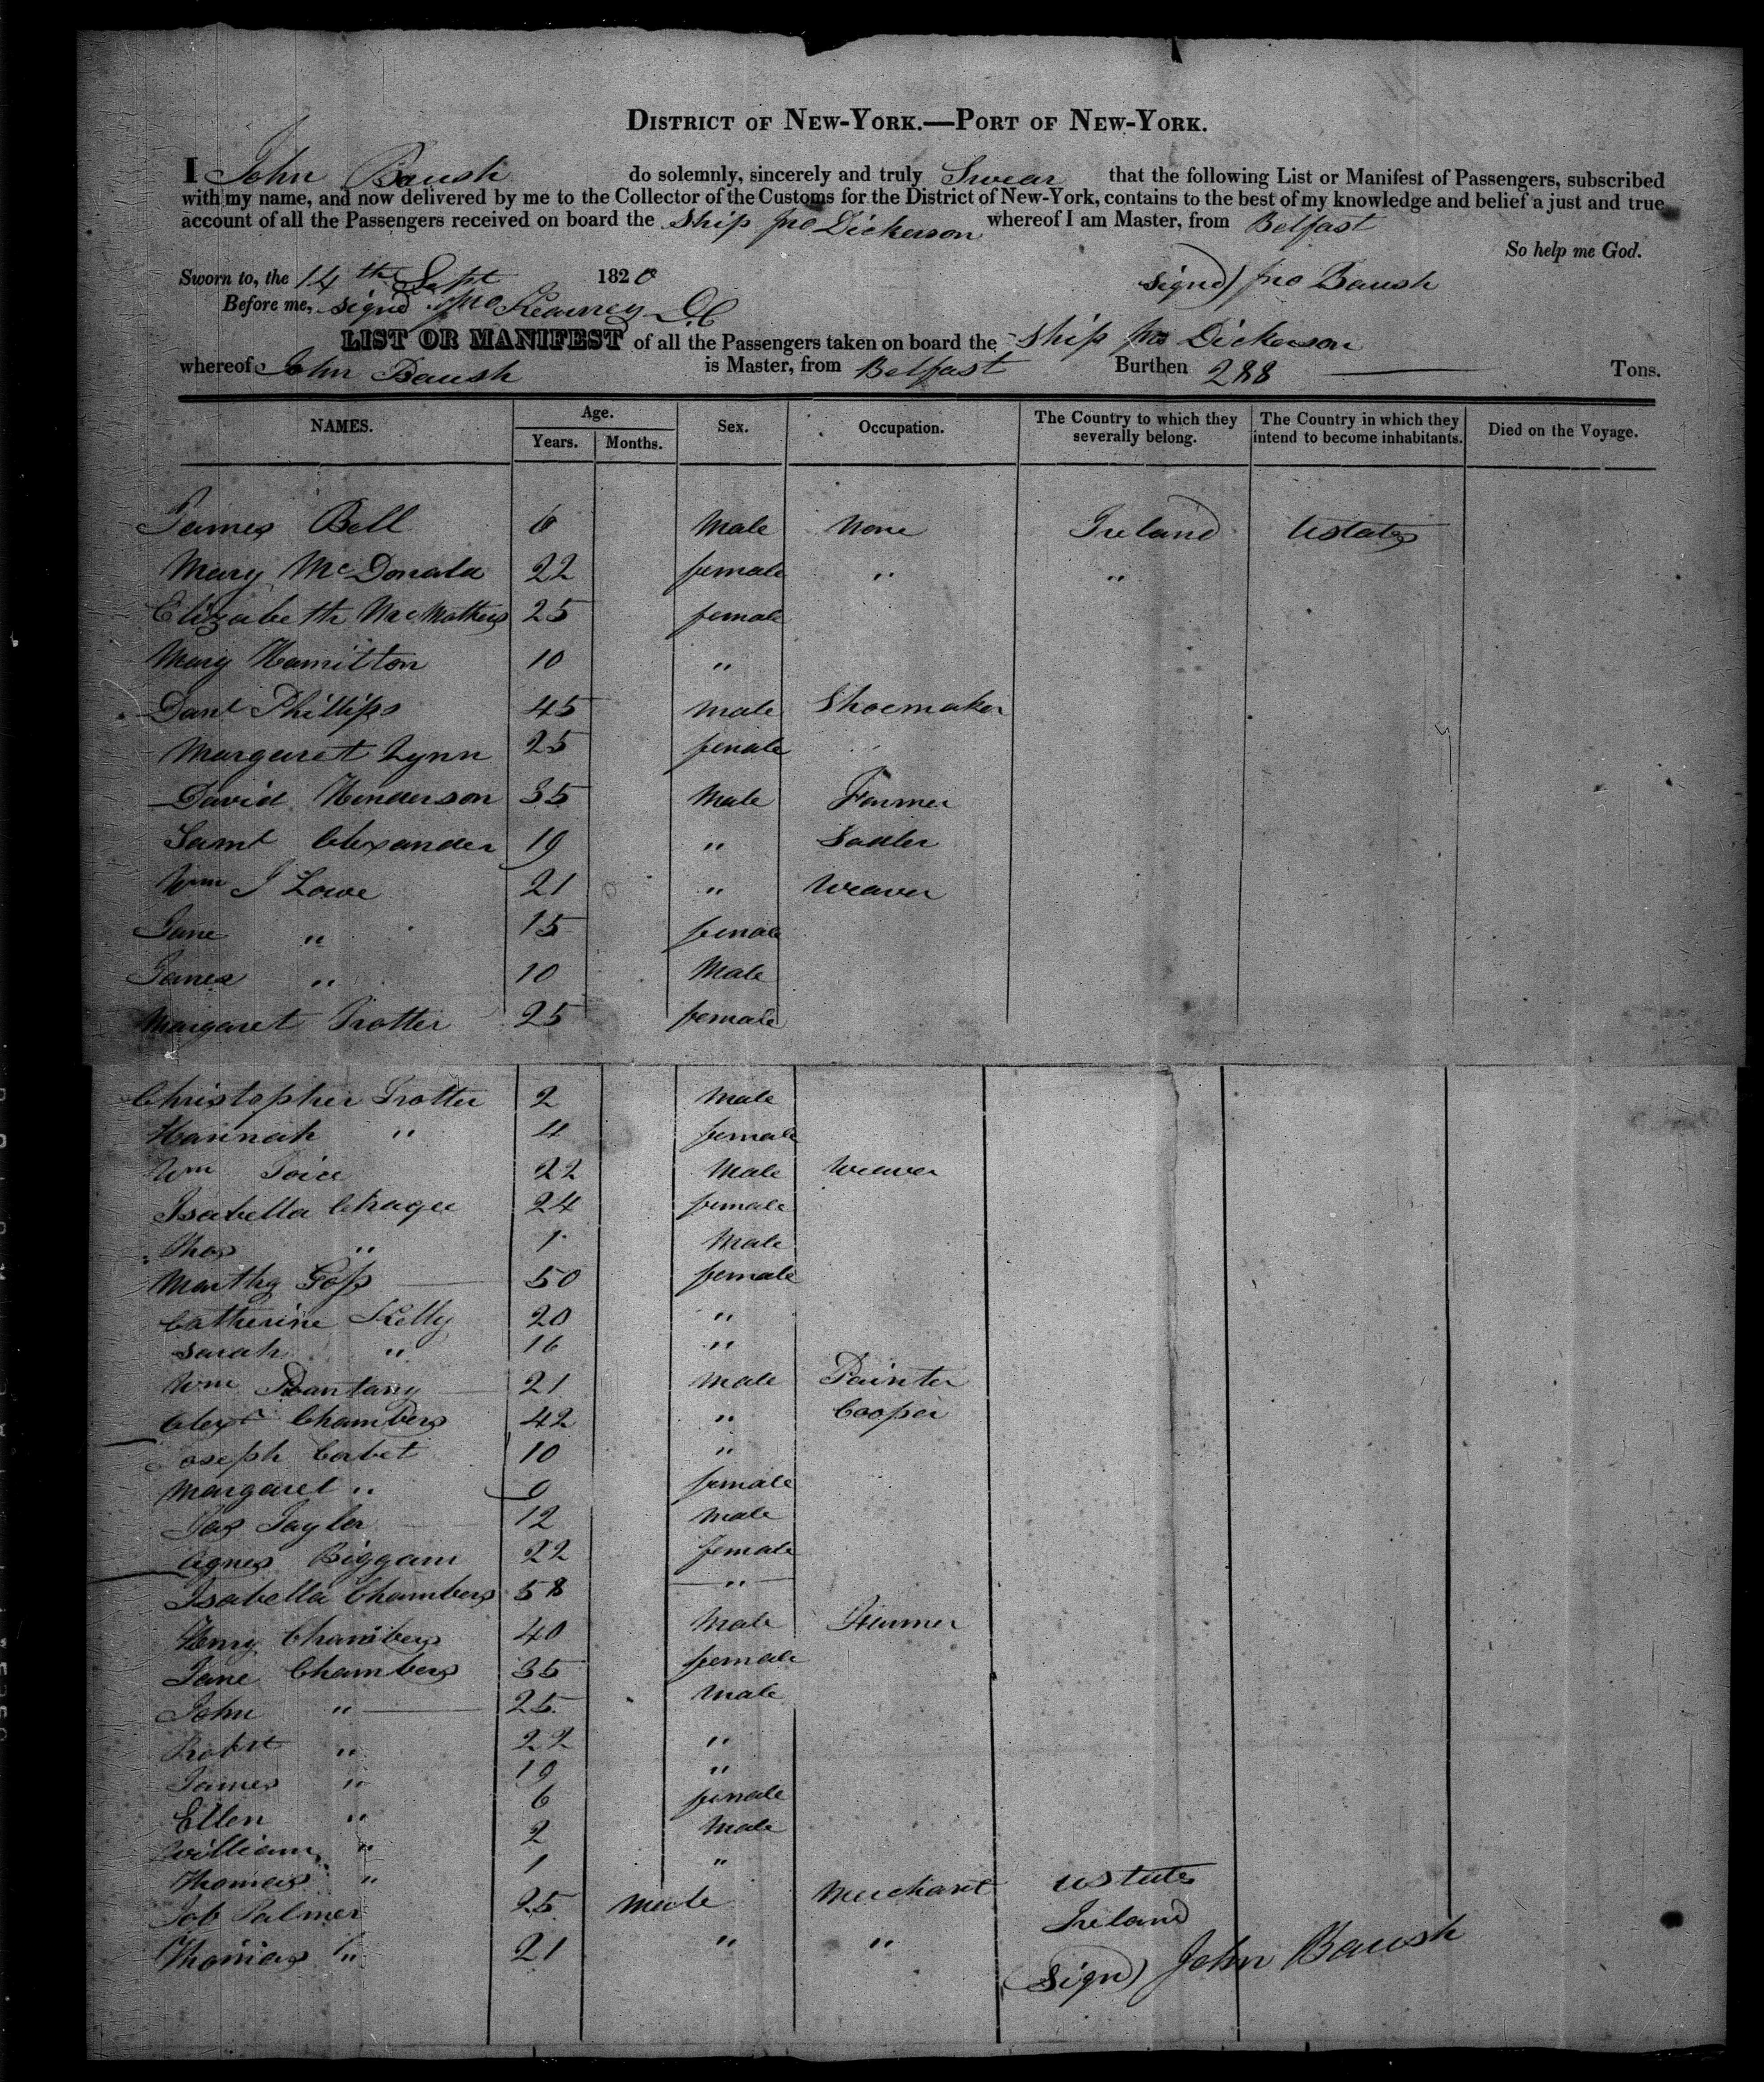 DISTRICT OF NEW-YORK.—PORT OF NEW-YORK.
I John Baush do solemnly, sincerely and truly Swear that the following List or Manifest of Passengers, subscribed
with my name, and now delivered by me to the Collector of the Customs for the District of New-York, contains to the best of my knowledge and belief a just and true
account of all the Passengers received on board the Ship Jno Dickerson whereof I am Master, from Belfast
So help me God.
Sworn to, the 14th Sept 1820 signd) Jno Baush
Before me, signd Jno Kearney DC
LIST OR MANIFEST of all the Passengers taken on board the Ship Jno Dickerson
whereof John Baush is Master, from Belfast Burthen 288 Tons.
NAMES. Age. Years. Months. Sex. Occupation. The Country to which they severally belong. The Country in which they intend to become inhabitants. Died on the Voyage.
James Bell 6 Male None Ireland Ustates
Mary McDonald 22 female " "
Elizabeth McMathers 25 female
Mary Hamilton 10 "
Danl Phillips 45 Male Shoemaker
Margaret Lynn 25 female
David Henderson 35 Male Farmer
Saml Alexander 19 " Sadler
Wm J Lowe 21 " Weaver
Jane " 15 female
James " 10 Male
Margaret Trotter 25 female
Christopher Trotter 2 Male
Hannah " 4 female
Wm Joice 22 Male Weaver
Isabella 24 female
Thos " 1 Male
Martha Goss 50 female
Catherine Kelly 20 "
Sarah " 16 "
Wm 21 Male Painter
Alexr Chambers 42 " Cooper
Joseph Corbet 10 "
Margaret " 9 female
Jas Taylor 12 Male
Agnes Biggam 22 female
Isabella Chambers 58 "
Henry Chambers 40 Male Farmer
Jane Chambers 35 female
John " 25 Male
Robt " 22 "
James " 19 "
Ellen " 6 female
William " 2 Male
Thomas " 1 "
Job Palmer 25 Male Merchant Ustates
Thomas " 21 " " Ireland
(Sign) John Baush